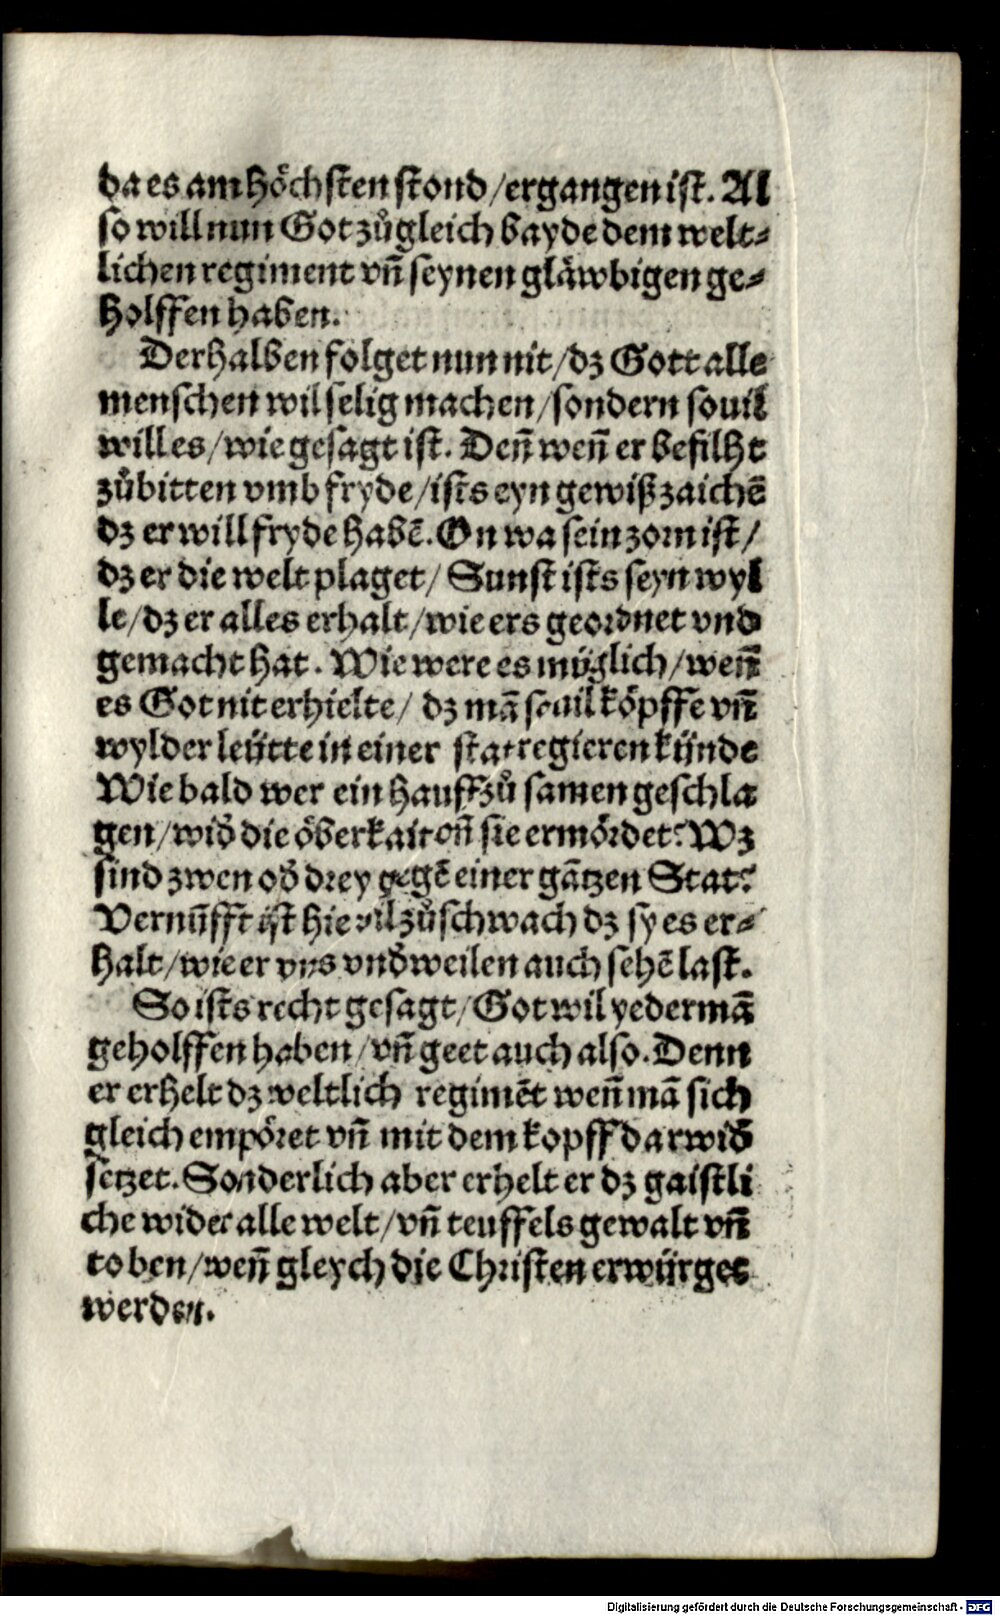 da es am höchsten stond/ergangen ist. Al
so will nun Got zůgleich bayde dem welt⸗
lichen regiment vñ seynen gläwbigen ge⸗
holffen haben.
Derhalben folget nun nit/dz Gott alle
menschen wil selig machen/sondern souil
will es/wie gesagt ist. Deñ weñ er befilht
zůbitten vmb fryde/ists eyn gewiß zaichē
dz er will fryde habē. On wa sein zorn ist/
dz er die welt plaget/ Sunst ists seyn wyl
le/dz er alles erhalt/wie ers geordnet vnd
gemacht hat. Wie were es müglich/weñ
es Got nit erhielte/ dz mā souil köpffe vñ
wylder leütte in einer stat regieren künde
Wie bald wer ein hauff zů samen geschla
gen/wid̕ die öberkait vñ sie ermördet? Wz
sind zwen od̕ drey gegē einer gātzen Stat?
Vernūfft ist hie vil zů schwach dz sy es er⸗
halt/wie er vns vnd̕weilen auch sehē last.
So ists recht gesagt/Got wil yedermā
geholffen haben/vñ geet auch also. Denn
er erhelt dz weltlich regimēt weñ mā sich
gleich empöret vñ mit dem kopff darwid̕
setzet. Sonderlich aber erhelt er dz gaistli
che wider alle welt/vñ teuffels gewalt vñ
toben/weñ gleych die Christen erwürget
werden.
Digitalisierung gefördert durch die Deutsche Forschungsgemeinschaft - DFG